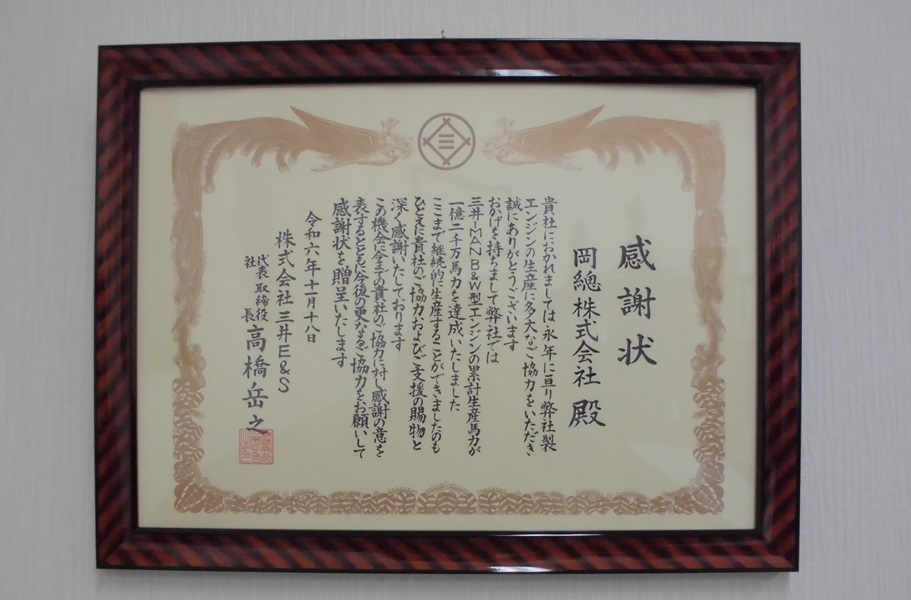 感謝状
岡總株式会社 殿
貴社におかれましては永年に亘り弊社製
エンジンの生産に多大なご協力をいただき
誠にありがとうございます
おかげを持ちまして弊社では
三井-MAN B&W型エンジンの累計生産馬力が
一億二千万馬力を達成いたしました
ここまで継続的に生産することができましたのも
ひとえに貴社のご協力およびご支援の賜物と
深く感謝いたしております
この機会に今までの貴社のご協力に対し感謝の意を
表するとともに今後の更なるご協力をお願いして
感謝状を贈呈いたします
令和六年十一月十八日
株式会社三井E&S
代表取締役
社長 高橋岳之